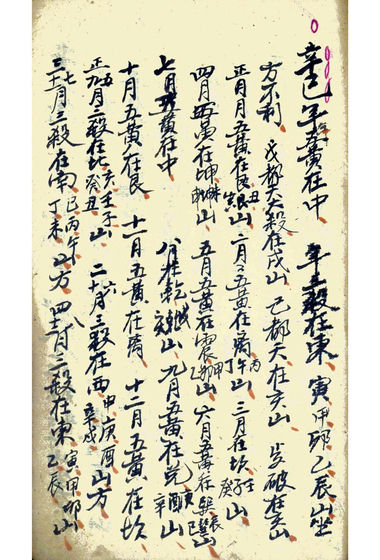 辛巳年五黃在中 年三殺在東 寅甲卯乙辰山坐
方不利 戊都天大殺在戌山 己都天在亥山 歲破在亥山
正月五黃在艮丑艮寅山 二月五黃在离丙午丁山 三月在坎壬子癸山
四月五黃在坤 山 五月五黃在震甲卯乙山 六月五黃在巽辰巽巳山
七月五黃在中 八月在乾 山 九月五黃在兌庚酉辛山
十月五黃在艮 十一月五黃在离 十二月五黃在坎
正五九月三殺在北亥壬子癸丑山 二六十月三殺在西申庚酉辛戌山方
三七十一月三殺在南巳丙午丁未山方 四八十二月三殺在東寅甲卯乙辰山